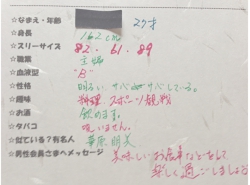 ☆なまえ・年齢 27才
☆身長 162cm
☆スリーサイズ 82. 61. 89
☆職業 主婦
☆血液型 "B"
☆性格 明るい サバサバしている。
☆趣味 料理. スポーツ観戦
☆お酒 飲めます。
☆タバコ 吸いません。
☆似ている?有名人 華原朋美
☆男性会員さまへメッセージ 美味しいお食事などをして
楽しく過ごしましょう